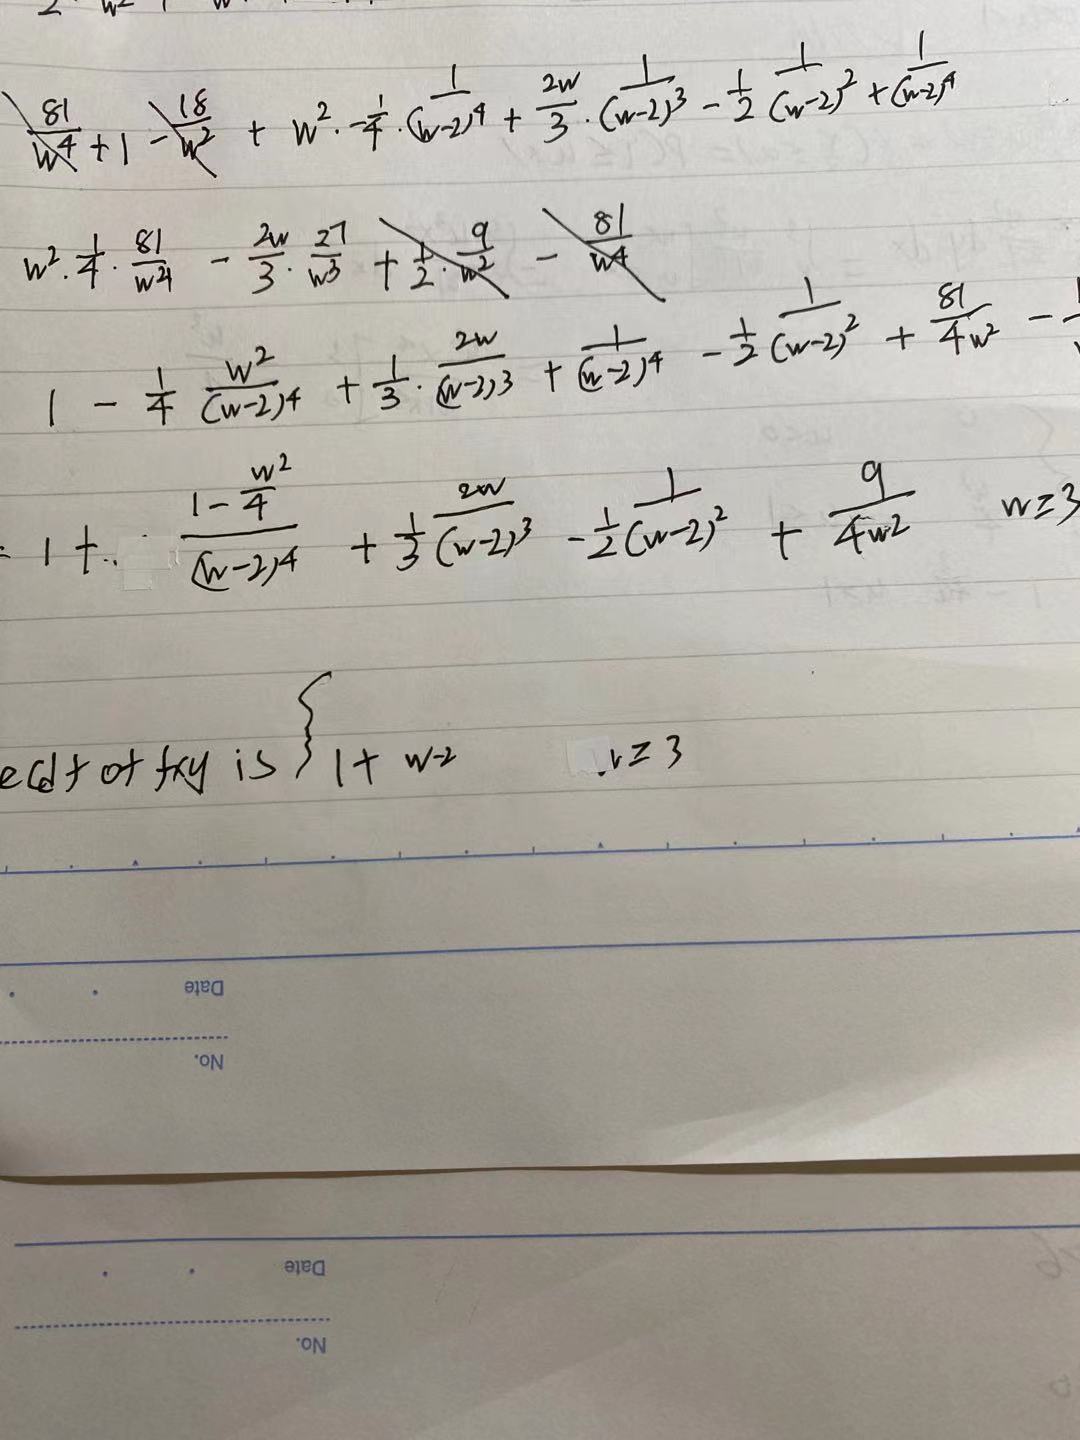 81/w⁴ + 1 - 18/w² + w² · -1/4 · 1/(w-2)⁴ + 2w/3 · 1/(w-2)³ - 1/2 1/(w-2)² + 1/(w-2)⁴
w² · 1/4 · 81/w⁴ - 2w/3 · 27/w³ + 1/2 · 9/w² - 81/w⁴
1 - 1/4 w²/(w-2)⁴ + 1/3 · 2w/(w-2)³ + 1/(w-2)⁴ - 1/2 1/(w-2)² + 81/4w² -
= 1 + (1 - w²/4)/(w-2)⁴ + 1/3 2w/(w-2)³ - 1/2 1/(w-2)² + 9/4w² w≥3
is { 1 + w-2 ≥ 3
Date
No.
Date
No.